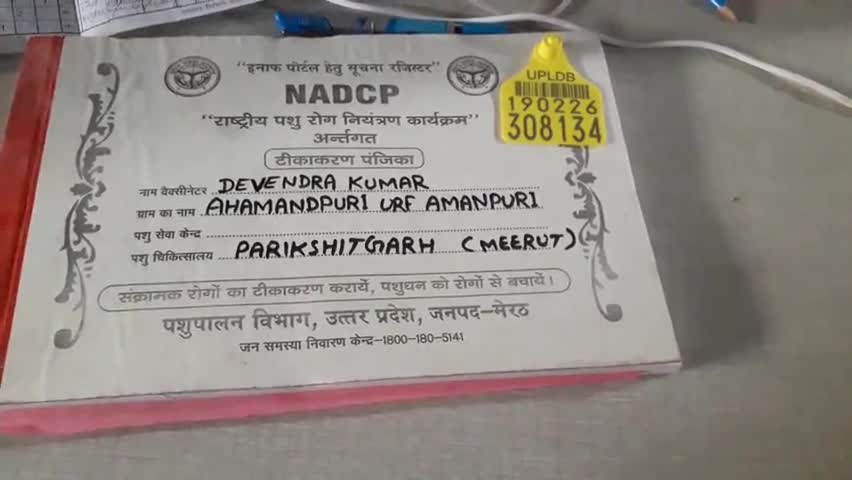 "इनाफ पोर्टल हेतु सूचना रजिस्टर"
NADCP
"राष्ट्रीय पशु रोग नियंत्रण कार्यक्रम"
अर्न्तगत
टीकाकरण पंजिका
नाम वैक्सीनेटर DEVENDRA KUMAR
ग्राम का नाम AHAMANDPURI URF AMANPURI
पशु सेवा केन्द्र
पशु चिकित्सालय PARIKSHITGARH (MEERUT)
संक्रामक रोगों का टीकाकरण करायें, पशुधन को रोगों से बचायें।
पशुपालन विभाग, उत्तर प्रदेश, जनपद-मेरठ
जन समस्या निवारण केन्द्र-1800-180-5141
UPLDB
190226
308134